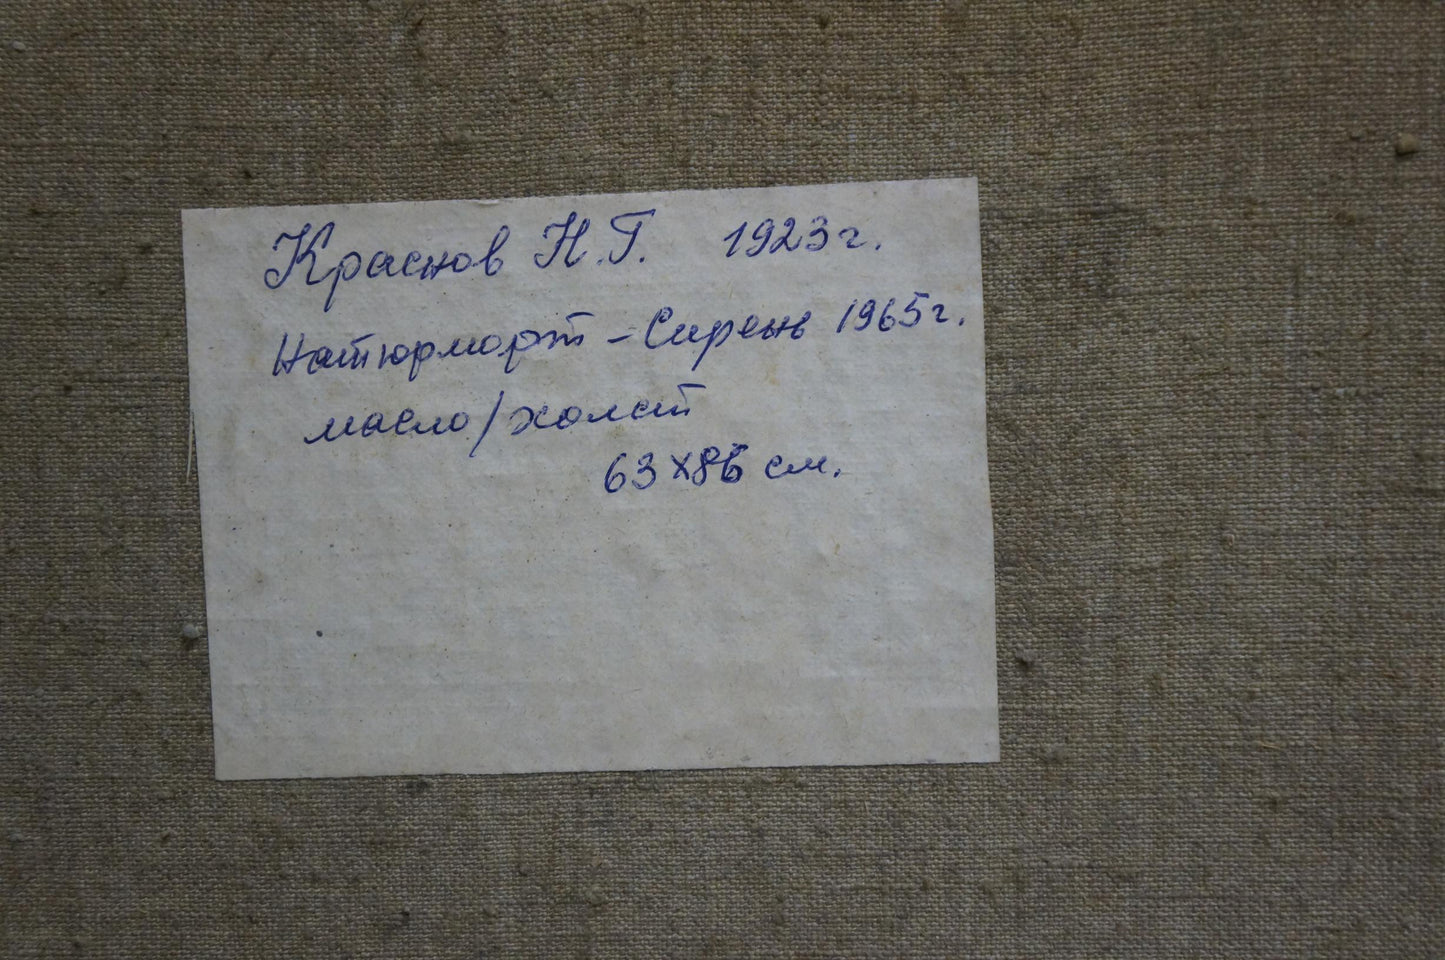 Краснов Н.Г. 1923г.
Натюрморт - Сирень 1965г.
масло/холст
63х86 см.